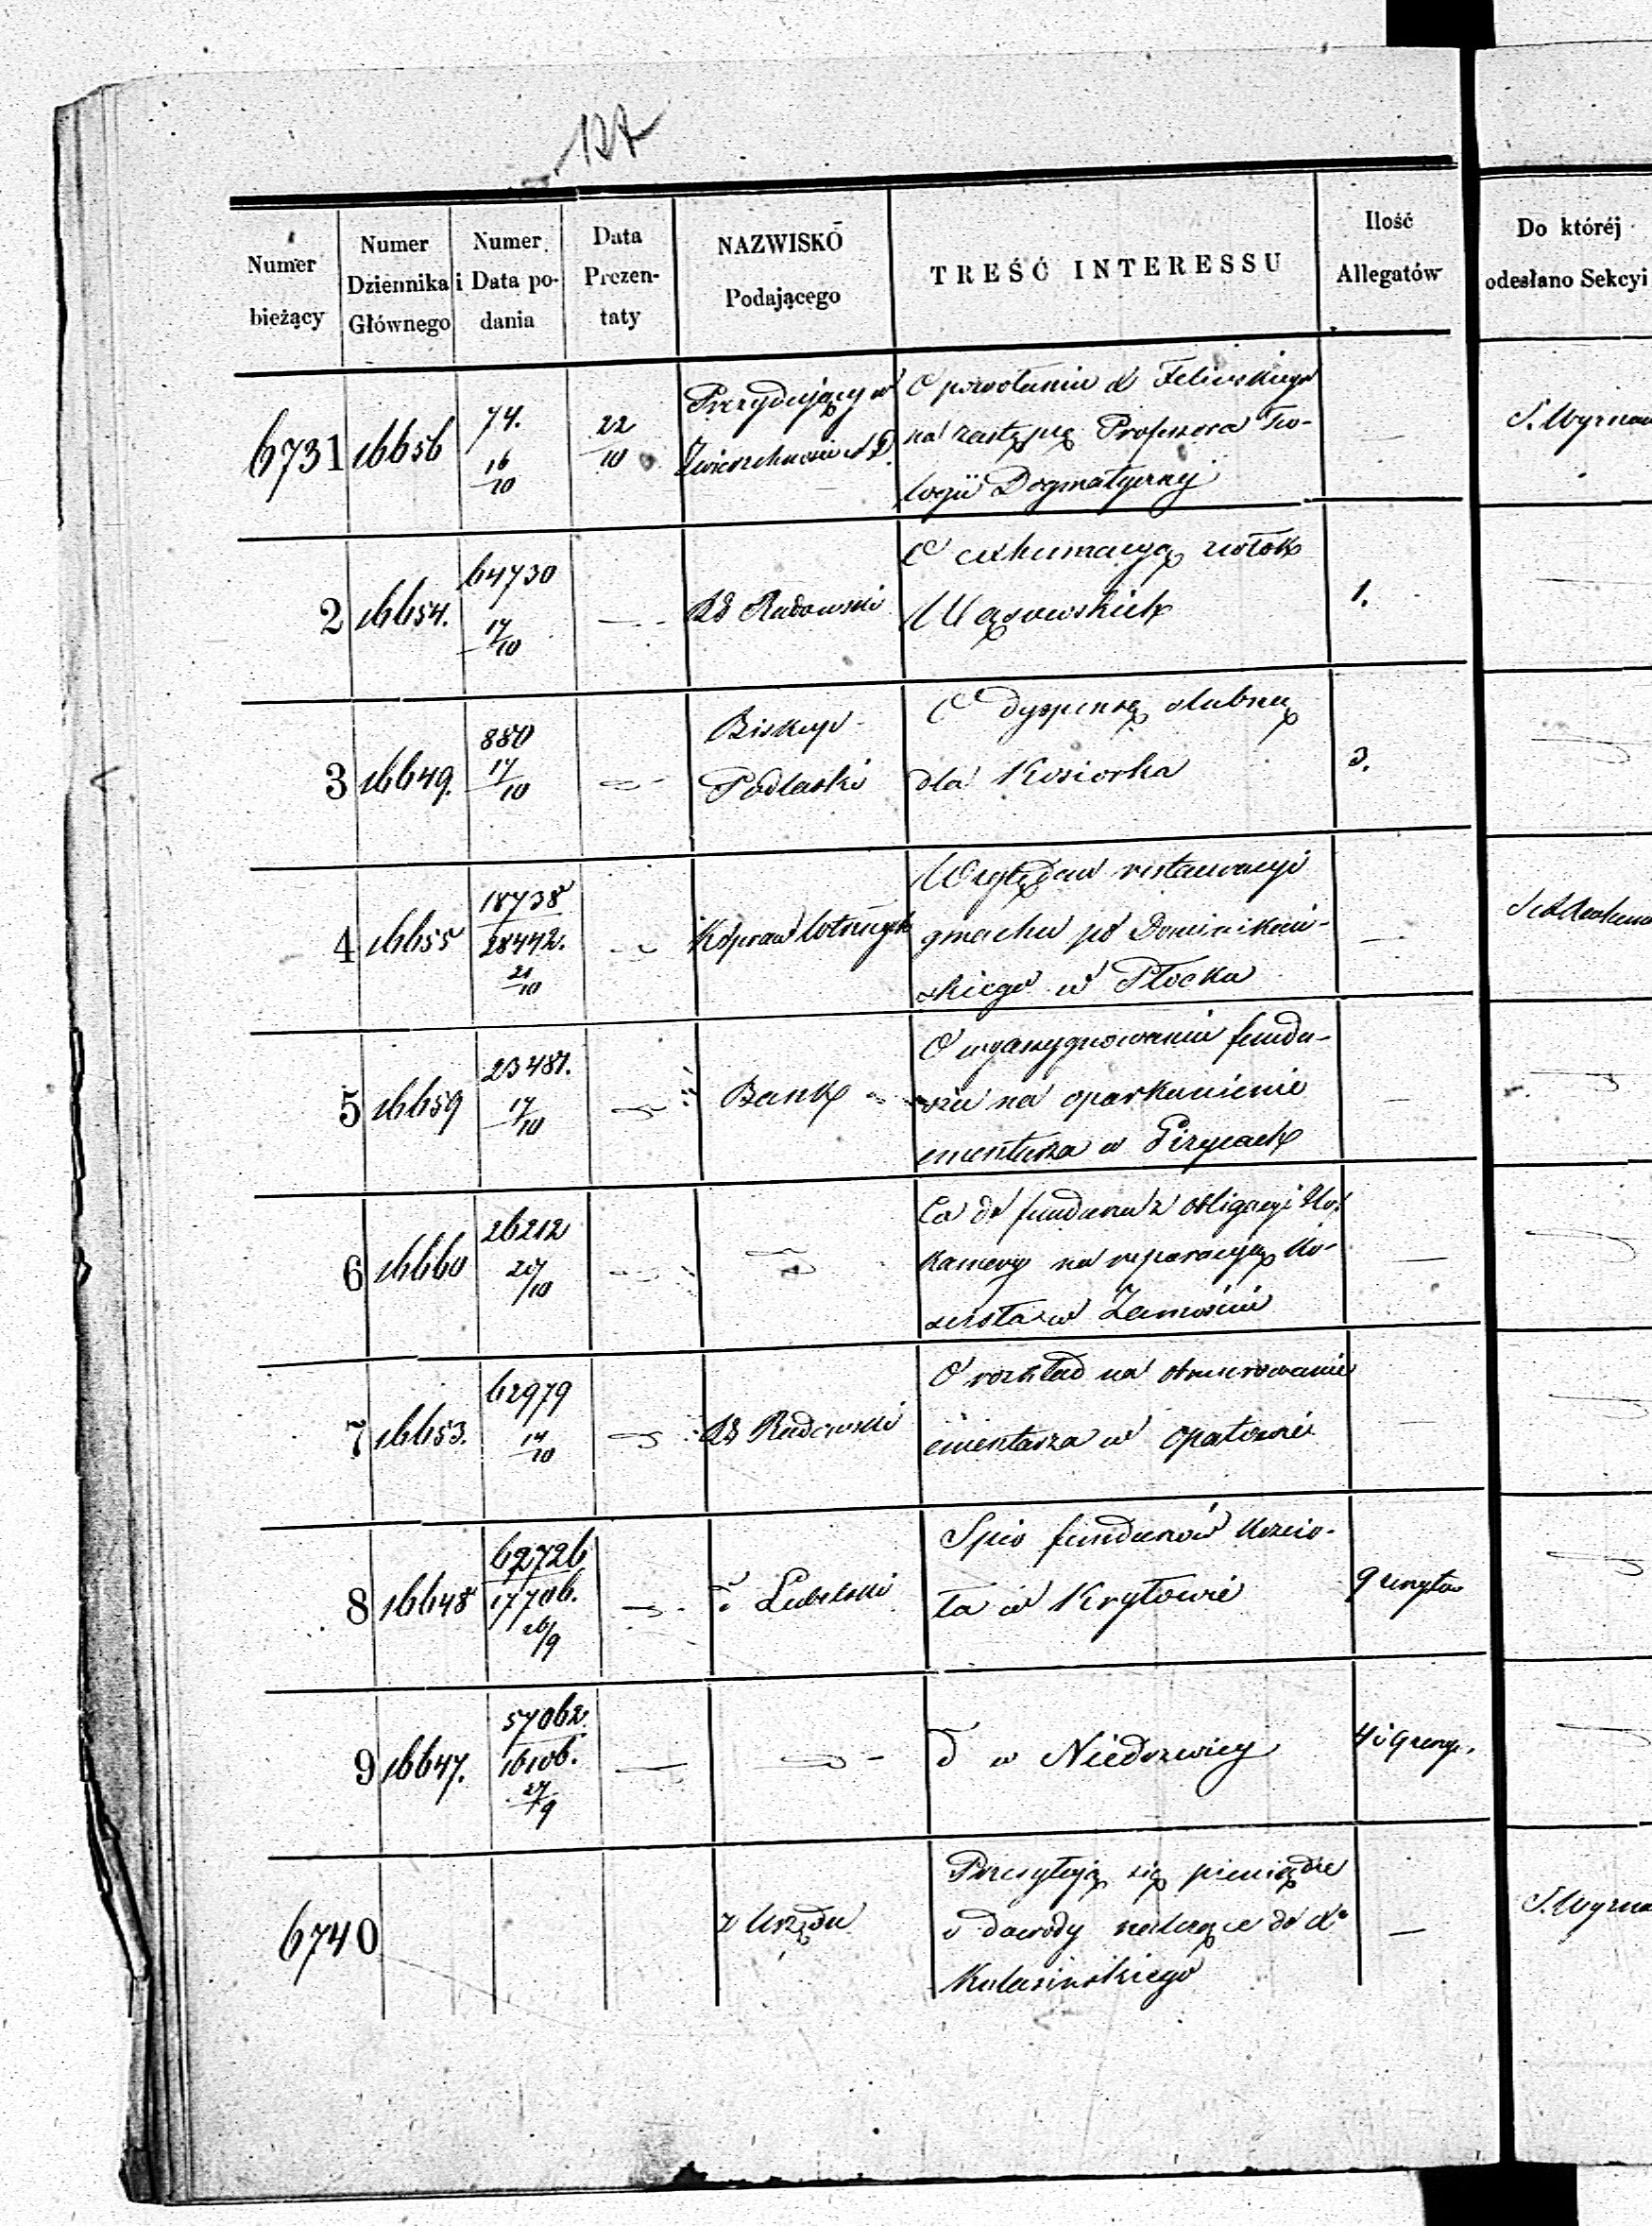 127
Numer
bieżący
Numer
Dziennika
Głównego
Numer
i Data po-
dania
Data
Prezen-
taty
NAZWISKO
Podającego
TREŚĆ INTERESSU
Ilość
Allegatów
Do któréj
odesłano Sekcyi
6731
16656
74.
16/10
22/10
Prezydujący w
O powołaniu X Felińskiego
na zastępcę Profesora Teo-
logii Dogmatycznej
S. Wyznań
2
16654.
64730
17/10
Rd Radomski
O exhumacyą zwłok
Wąsowskich
1.
3
16649.
880
17/10
Biskup
Podlaski
O dyspensę ślubną
dla Kosiorka
3.
4
16655
18738
28442.
21/10
Względem restauracyi
gmachu po Dominikań-
skiego w Płocku
5
16659
23481.
17/10
Bank
O wyasygnowanie fundu-
szu na oparkanienie
cmentarza w Giżycach
6
16660
26212
20/10
Co do funduszu z obligacyi
na reparacyą Ko-
ścioła w Zamościu
7
16653.
62979
17/10
Rd Radomski
O rozkład na obmurowanie
cmentarza w Opatowie
8
16648
62726
17706.
26/9
" Lubelski
Spis funduszów Kościo-
ła w Kryłowie
9
9
16647.
57062
16106.
27/9
d w Niedrzwicy
4 i 9
6740
z Urzędu
Przesyłają się pieniądze
i dowody należące do X.
Kulasińskiego
S. Wyzna